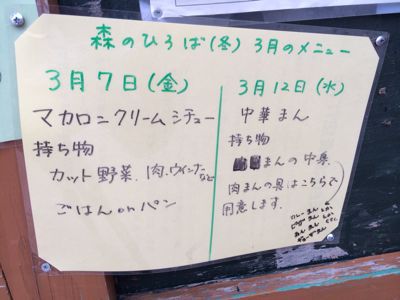 森のひろば(冬) 3月のメニュー
3月7日(金)
マカロニクリームシチュー
持ち物
カット野菜、肉、ウインナーなど
ごはん or パン
3月12日(水)
中華まん
持ち物
まんの中身
肉まんの具はこちらで
用意します。
カレーまん
ピザまん
あんまん